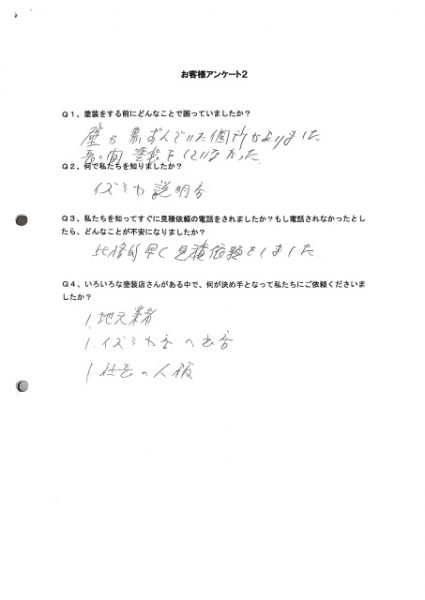 お客様アンケート2
Q1、塗装をする前にどんなことで困っていましたか？
壁も黒ずんでいた個所がありました
長い間 塗装をしていなかった
Q2、何で私たちを知りましたか？
イズミカ説明会
Q3、私たちを知ってすぐに見積依頼の電話をされましたか？もし電話されなかったとし
たら、どんなことが不安になりましたか？
比較的早く見積依頼をしました
Q4、いろいろな塗装店さんがある中で、何が決め手となって私たちにご依頼くださいま
したか？
1.地元業者
1.イズミカ
1 社長の人